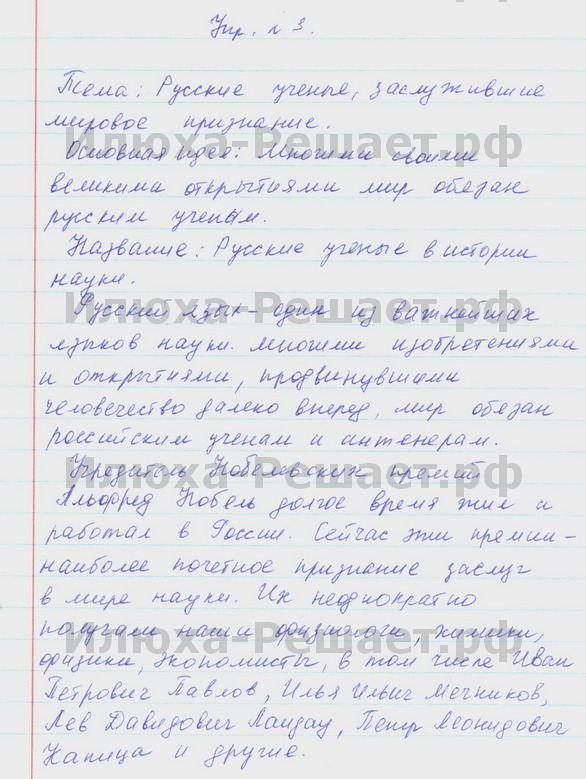 Упр. № 3.
Тема: Русские ученые, заслужившие
мировое признание.
Основная идея: Многими своими
великими открытиями мир обязан
русским ученым.
Название: Русские ученые в истории
науки.
Русский язык – один из важнейших
языков науки. Многими изобретениями
и открытиями, продвинувшими
человечество далеко вперед, мир обязан
российским ученам и инженерам.
Учредитель Нобелевских премий
Альфред Нобель долгое время жил и
работал в России. Сейчас эти премии –
наиболее почетное признание заслуг
в мире науки. Их неоднократно
получали наши физиологи, химики,
физики, экономисты, в том числе Иван
Петрович Павлов, Илья Ильич Мечников,
Лев Давидович Ландау, Петр Леонидович
Капица и другие.
Илюха-Решает.рф
Илюха-Решает.рф
Илюха-Решает.рф
Илюха-Решает.рф
Илюха-Решает.рф